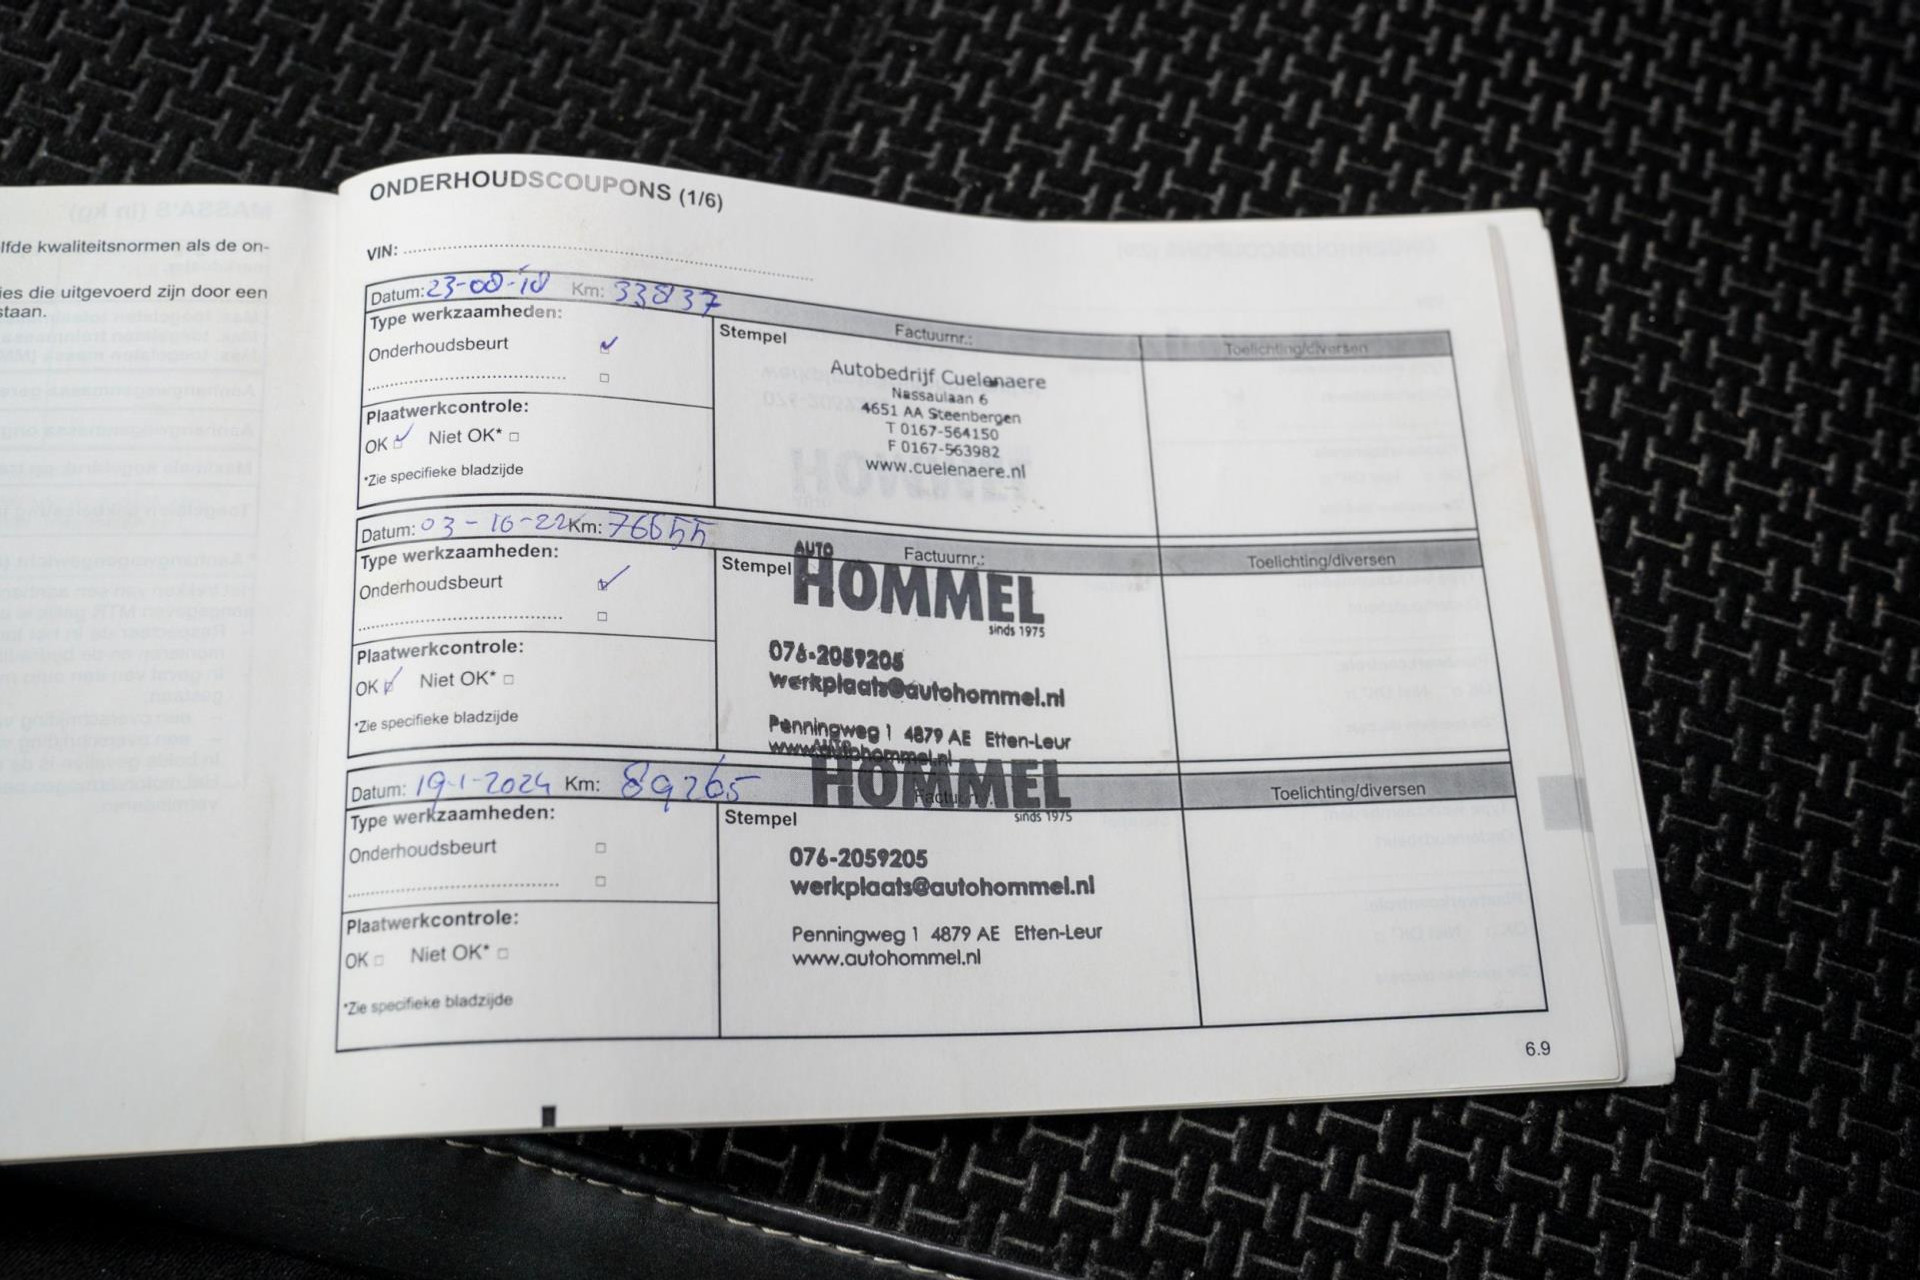 lfde kwaliteitsnormen als de on-
ies die uitgevoerd zijn door een
staan.
ONDERHOUDSCOUPONS (1/6)
VIN:
Datum: 23-08-18 Km: 33837
Factuurnr.:
Toelichting/diversen
Type werkzaamheden:
Onderhoudsbeurt
Plaatwerkcontrole:
OK Niet OK*
*Zie specifieke bladzijde
Stempel
Autobedrijf Cuelenaere
Nassaulaan 6
4651 AA Steenbergen
T 0167-564150
F 0167-563982
www.cuelenaere.nl
Datum: 03-10-22 Km: 76655
Factuurnr.:
Toelichting/diversen
Type werkzaamheden:
Onderhoudsbeurt
Plaatwerkcontrole:
OK Niet OK*
*Zie specifieke bladzijde
Stempel
AUTO
HOMMEL
sinds 1975
076-2059205
werkplaats@autohommel.nl
Penningweg 1 4879 AE Etten-Leur
www.autohommel.nl
Datum: 19-1-2024 Km: 89265
Factuurnr.:
Toelichting/diversen
Type werkzaamheden:
Onderhoudsbeurt
Plaatwerkcontrole:
OK Niet OK*
*Zie specifieke bladzijde
Stempel
AUTO
HOMMEL
sinds 1975
076-2059205
werkplaats@autohommel.nl
Penningweg 1 4879 AE Etten-Leur
www.autohommel.nl
6.9